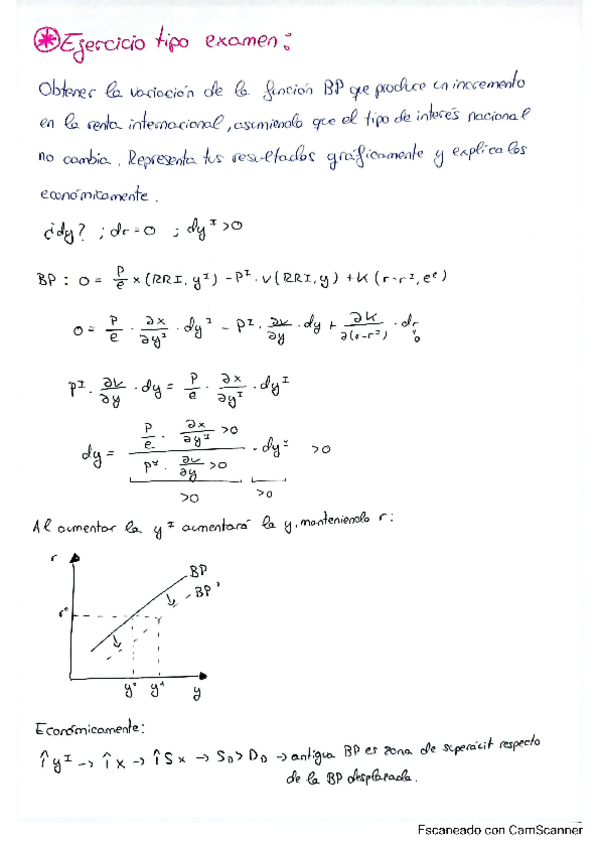 * Ejercicio tipo examen:
Obtener la variación de la función BP que produce un incremento
en la renta internacional, asumiendo que el tipo de interés nacional
no cambia. Representa tus resultados gráficamente y explica los
económicamente.
¿dy? ; dr=0 ; dy^I >0
BP: 0 = P/e x (RRI, y^I) - P^I · v(RRI, y) + K (r-r^I, e^e)
0 = P/e · ∂x/∂y^I · dy^I - P^I · ∂v/∂y · dy + ∂K/∂(r-r^I) · dr 0
P^I · ∂v/∂y · dy = P/e · ∂x/∂y^I · dy^I
dy = (P/e · ∂x/∂y^I >0) / (P^I · ∂v/∂y >0) · dy^I >0
>0 >0
Al aumentar la y^I aumentará la y, manteniendo r:
r
BP
BP'
r°
y° y¹ y
Económicamente:
↑y^I → ↑x → ↑Sx → S_D > D_D → antigua BP es zona de superácit respecto
de la BP desplazada.
Escaneado con CamScanner